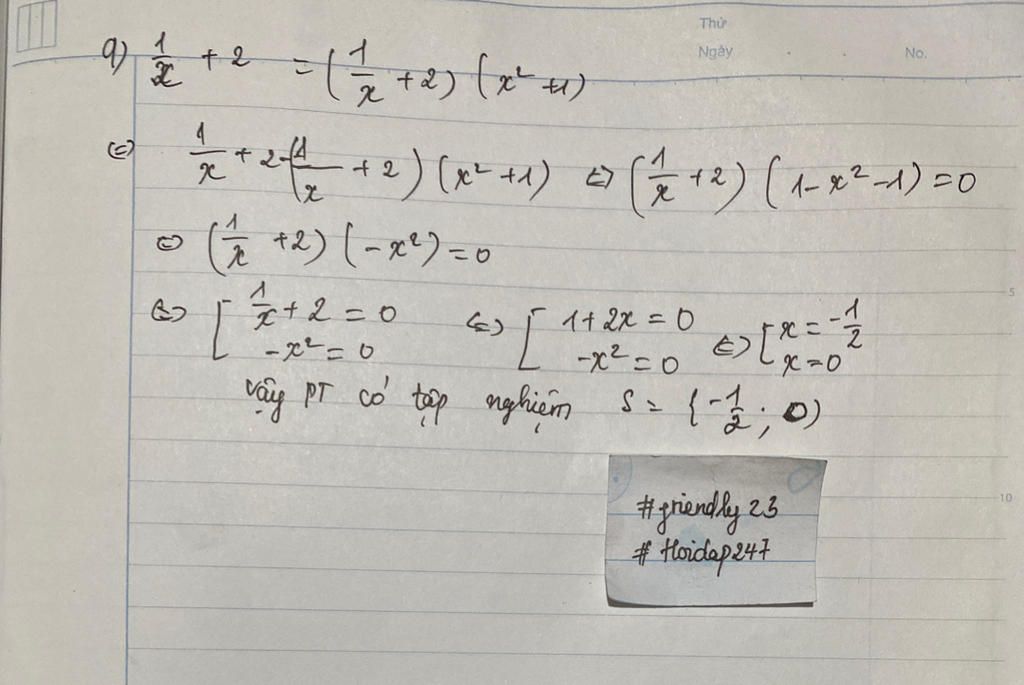 Thứ
Ngày No.
a) 1/x + 2 = (1/x + 2) (x² + 1)
⇔ 1/x + 2 - (1/x + 2) (x² + 1) ⇔ (1/x + 2) (1 - x² - 1) = 0
⇔ (1/x + 2) (-x²) = 0
⇔ [ 1/x + 2 = 0 ⇔ [ 1 + 2x = 0 ⇔ [ x = -1/2
-x² = 0 -x² = 0 x = 0
Vậy PT có tập nghiệm S = {-1/2 ; 0)
5
10
#friendly 23
# Hoidap247